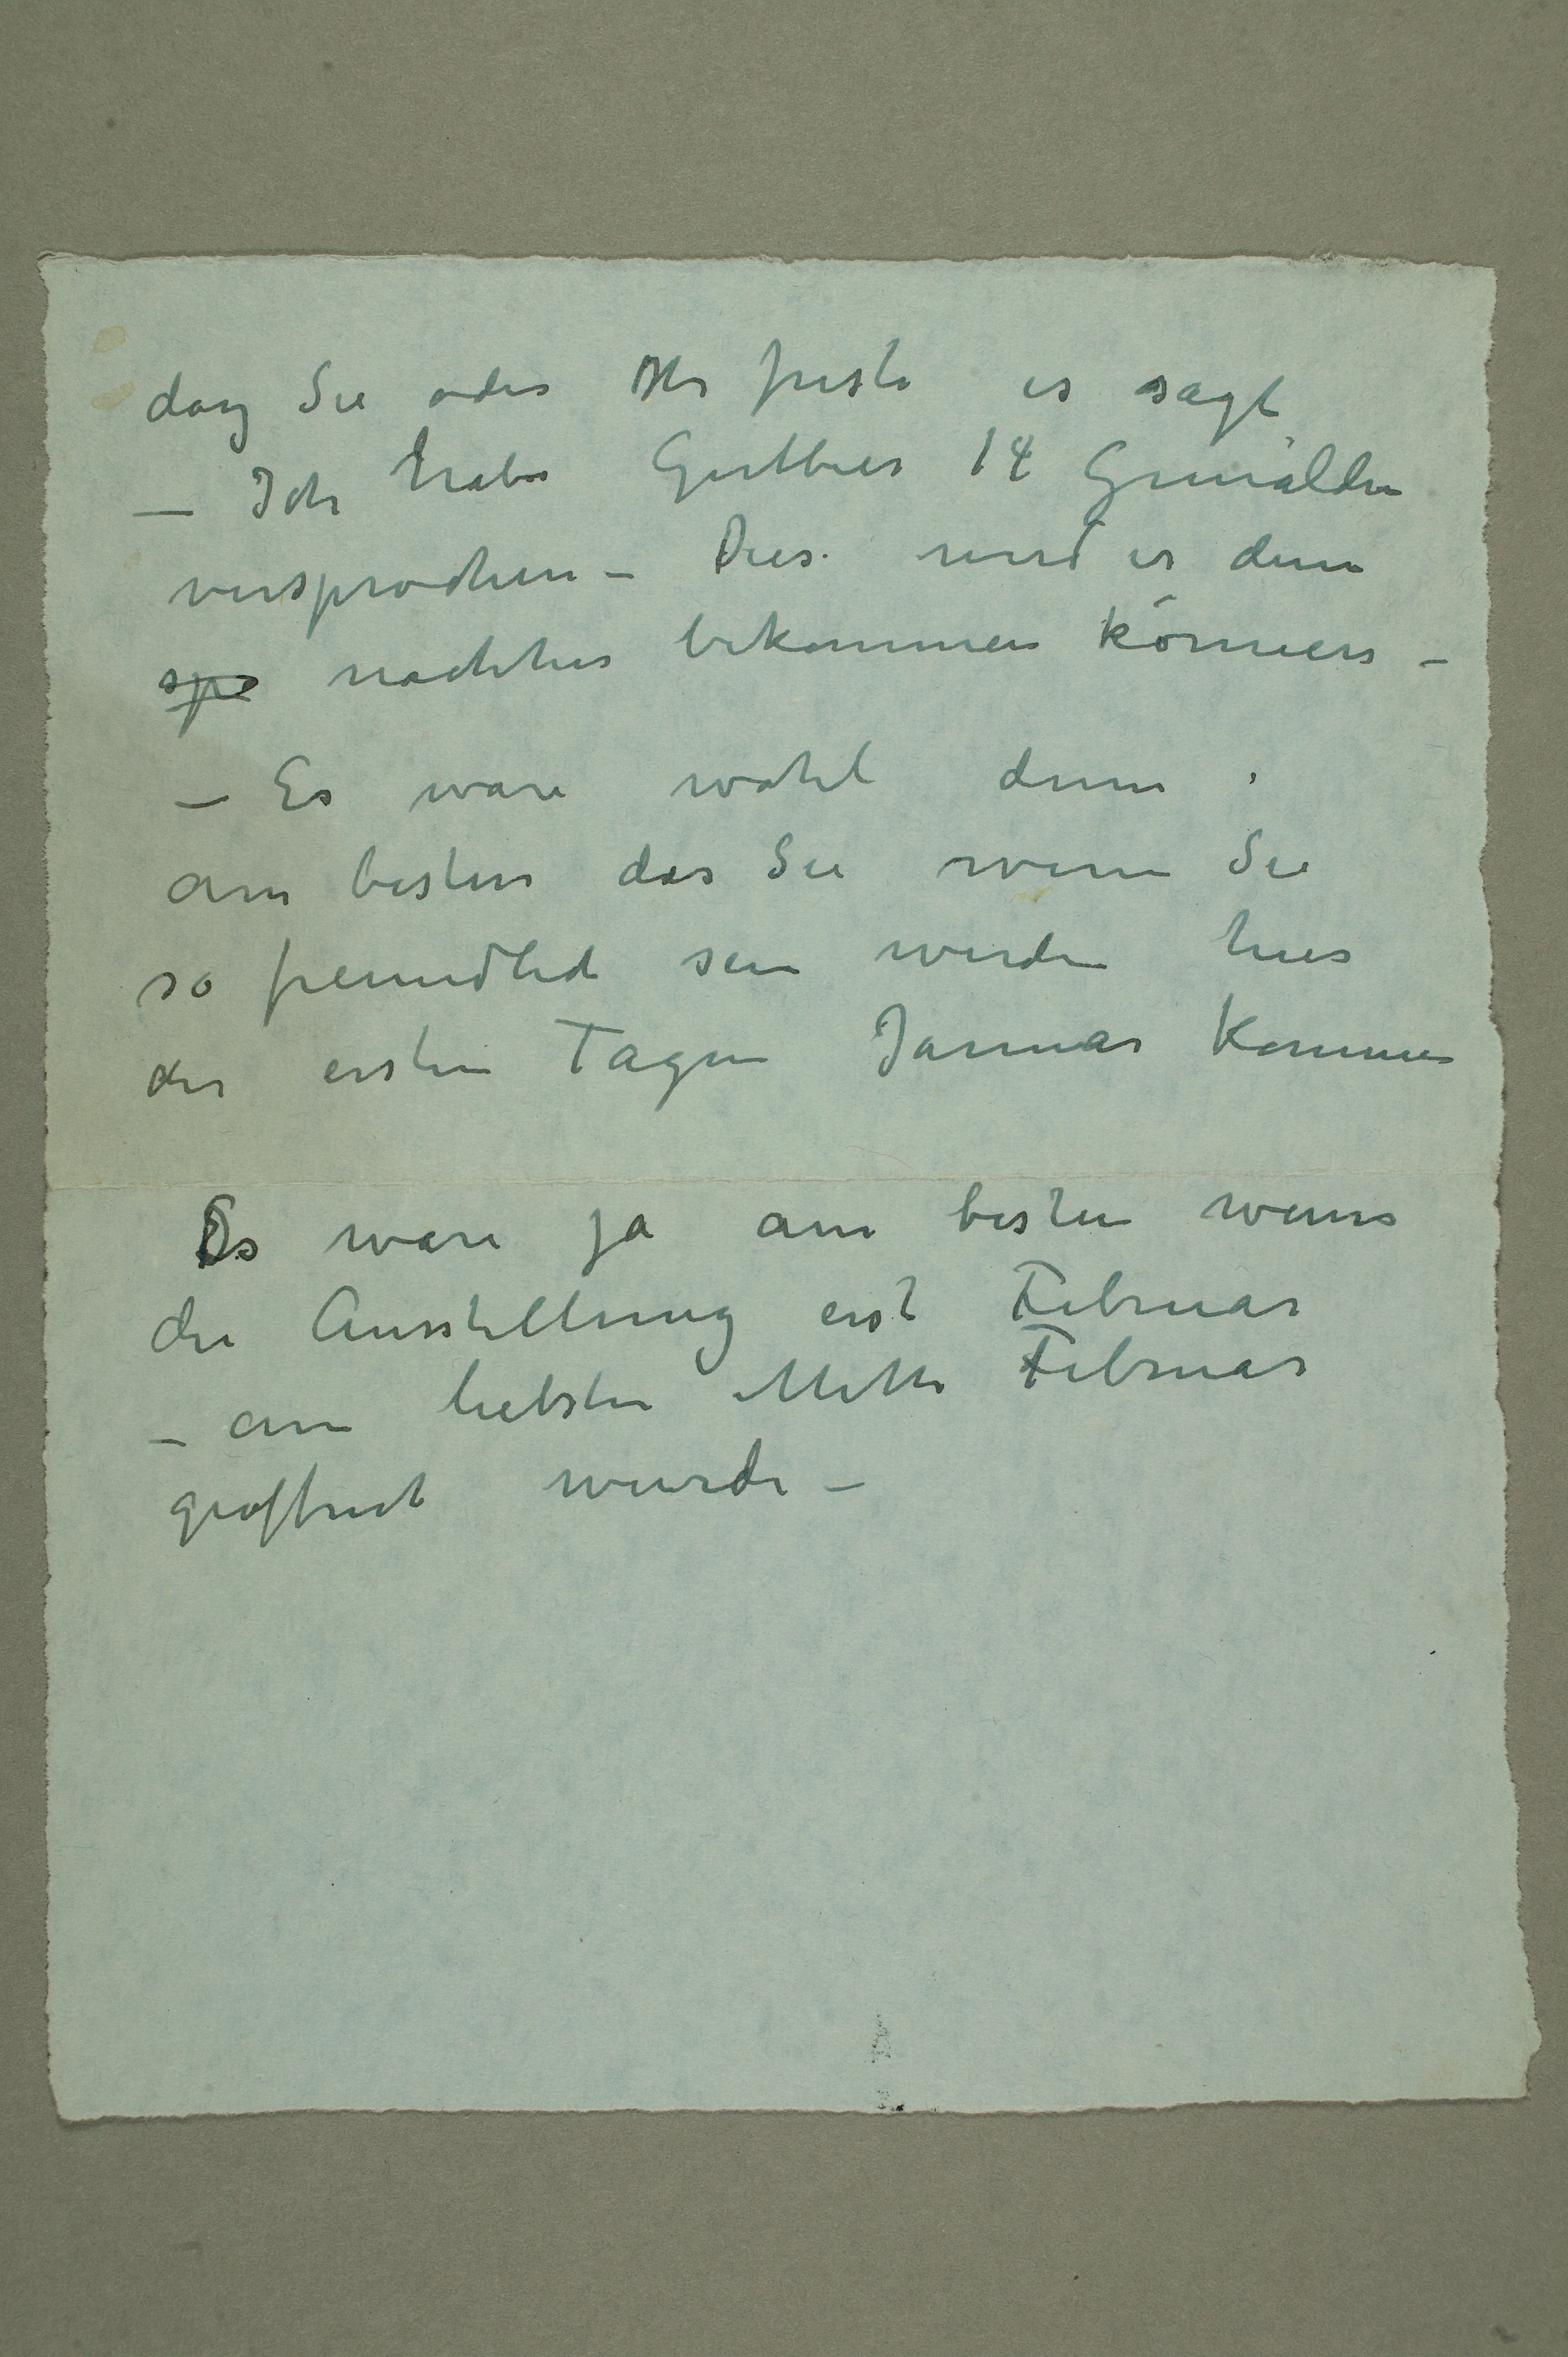 das Sie oder Hr Juste es sagt
— Ich habe Gutbier 14 Gemälden
versprochen – Dies wird er denn
spe nachher bekommen können –
– Es ware wohl denn
am besten das Sie wenn Sie
so freundlich sein werden hier
der ersten Tagen Januar kommen
Es ware ja am besten wenn
die Ausstellung erst Februar
– am liebsten Mitte Februar
geöffnet wurde –